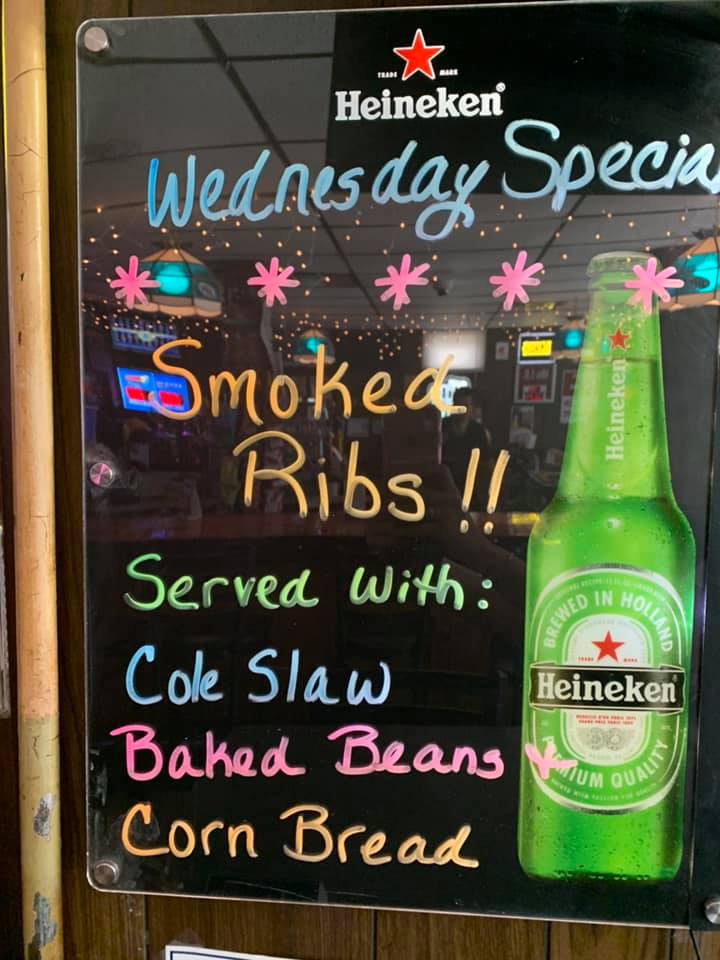 TRADE MARK
Heineken®
Wednesday Specia
* * * * *
Smoked
Ribs !!
Served With:
Cole Slaw
Baked Beans *
Corn Bread
Heineken
BREWED IN HOLLAND
TRADE MARK
Heineken
MIUM QUALITY